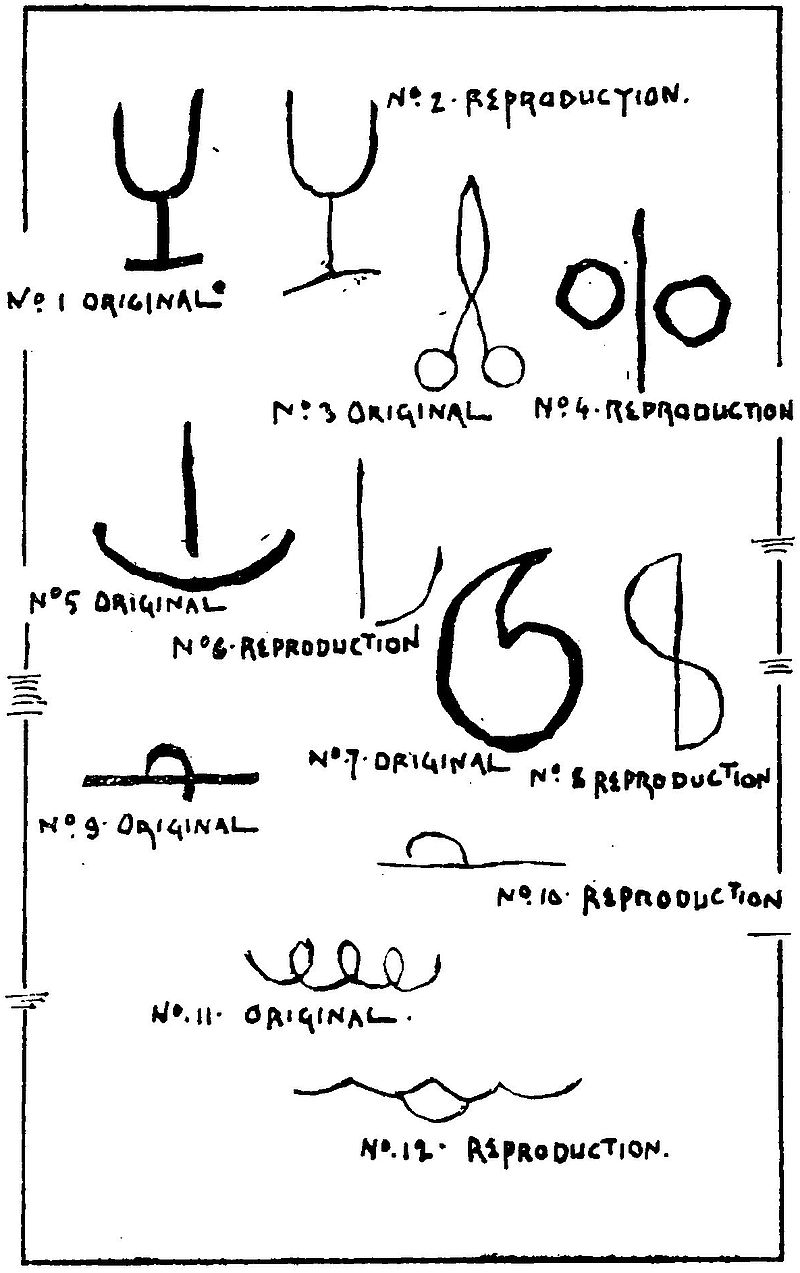 Nº. 2. REPRODUCTION.
Nº. 1 ORIGINAL
Nº. 3 ORIGINAL
Nº. 4. REPRODUCTION
Nº 5 ORIGINAL
Nº 6. REPRODUCTION
Nº. 7. ORIGINAL
Nº. 8 REPRODUCTION
Nº. 9. ORIGINAL
Nº. 10. REPRODUCTION
Nº. 11. ORIGINAL.
Nº. 12. REPRODUCTION.